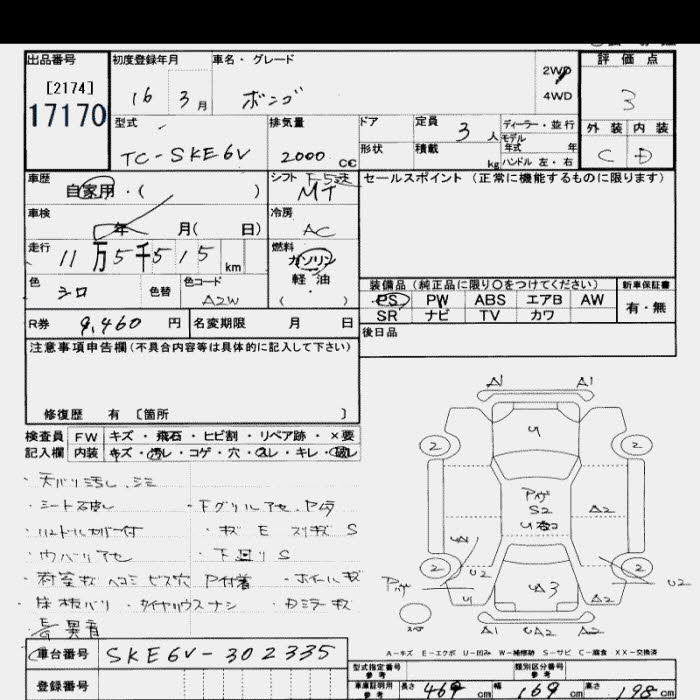 出品番号 初度登録年月 車名・グレード 評価点
[2174]
17170
16 3月 ボンゴ 2WD 4WD 3
型式 排気量 ドア 定員 3人 ディーラー・並行 外装 内装
モデル年式 年
TC-SKE6V 2000cc 形状 積載 kg ハンドル 左・右 C D
車歴 シフト F5速 セールスポイント (正常に機能するものに限ります)
自家用・( ) MT
車検 冷房
年 月( 日) AC
走行 燃料
11万5千515km ガソリン
軽・油
( )
色 シロ 色替 色コード A2W
装備品 (純正品に限り○をつけてください) 新車保証書
PS PW ABS エアB AW 有・無
SR ナビ TV カワ
R券 9,460円 名変期限 月 日
後日品
注意事項申告欄(不具合内容等は具体的に記入して下さい)
修復歴 有 [箇所 ]
検査員 FW キズ・飛石・ヒビ割・リペア跡・×要
記入欄 内装 キズ・汚レ・コゲ・穴・スレ・キレ・破レ
・天バリ汚レ、シミ
・シート破レ ・Fグリルアセ、Pムラ
・ハンドルカバー付 ・キズ E スリキズ S
・ウバリアセ ・下回リ S
・荷室キズ ヘコミ ビス穴 P付着 ・ホイールキズ
・床板バリ ・タイヤハウスナシ ・Dミラーキズ
・異音
A1 A1
2 U 2
Pハゲ
S2
A2
UA U2 U2
2 2
Pハゲ U UA3 A2
スペア A1 UA2 A2
A-キズ E-エクボ U-凹み W-補修跡 S-サビ C-腐食 XX-交換済
車台番号 SKE6V-302335
型式指定番号 参考 類別区分番号 参考
登録番号 車庫証明用 参考 長さ 469cm 幅 169cm 高さ 198cm